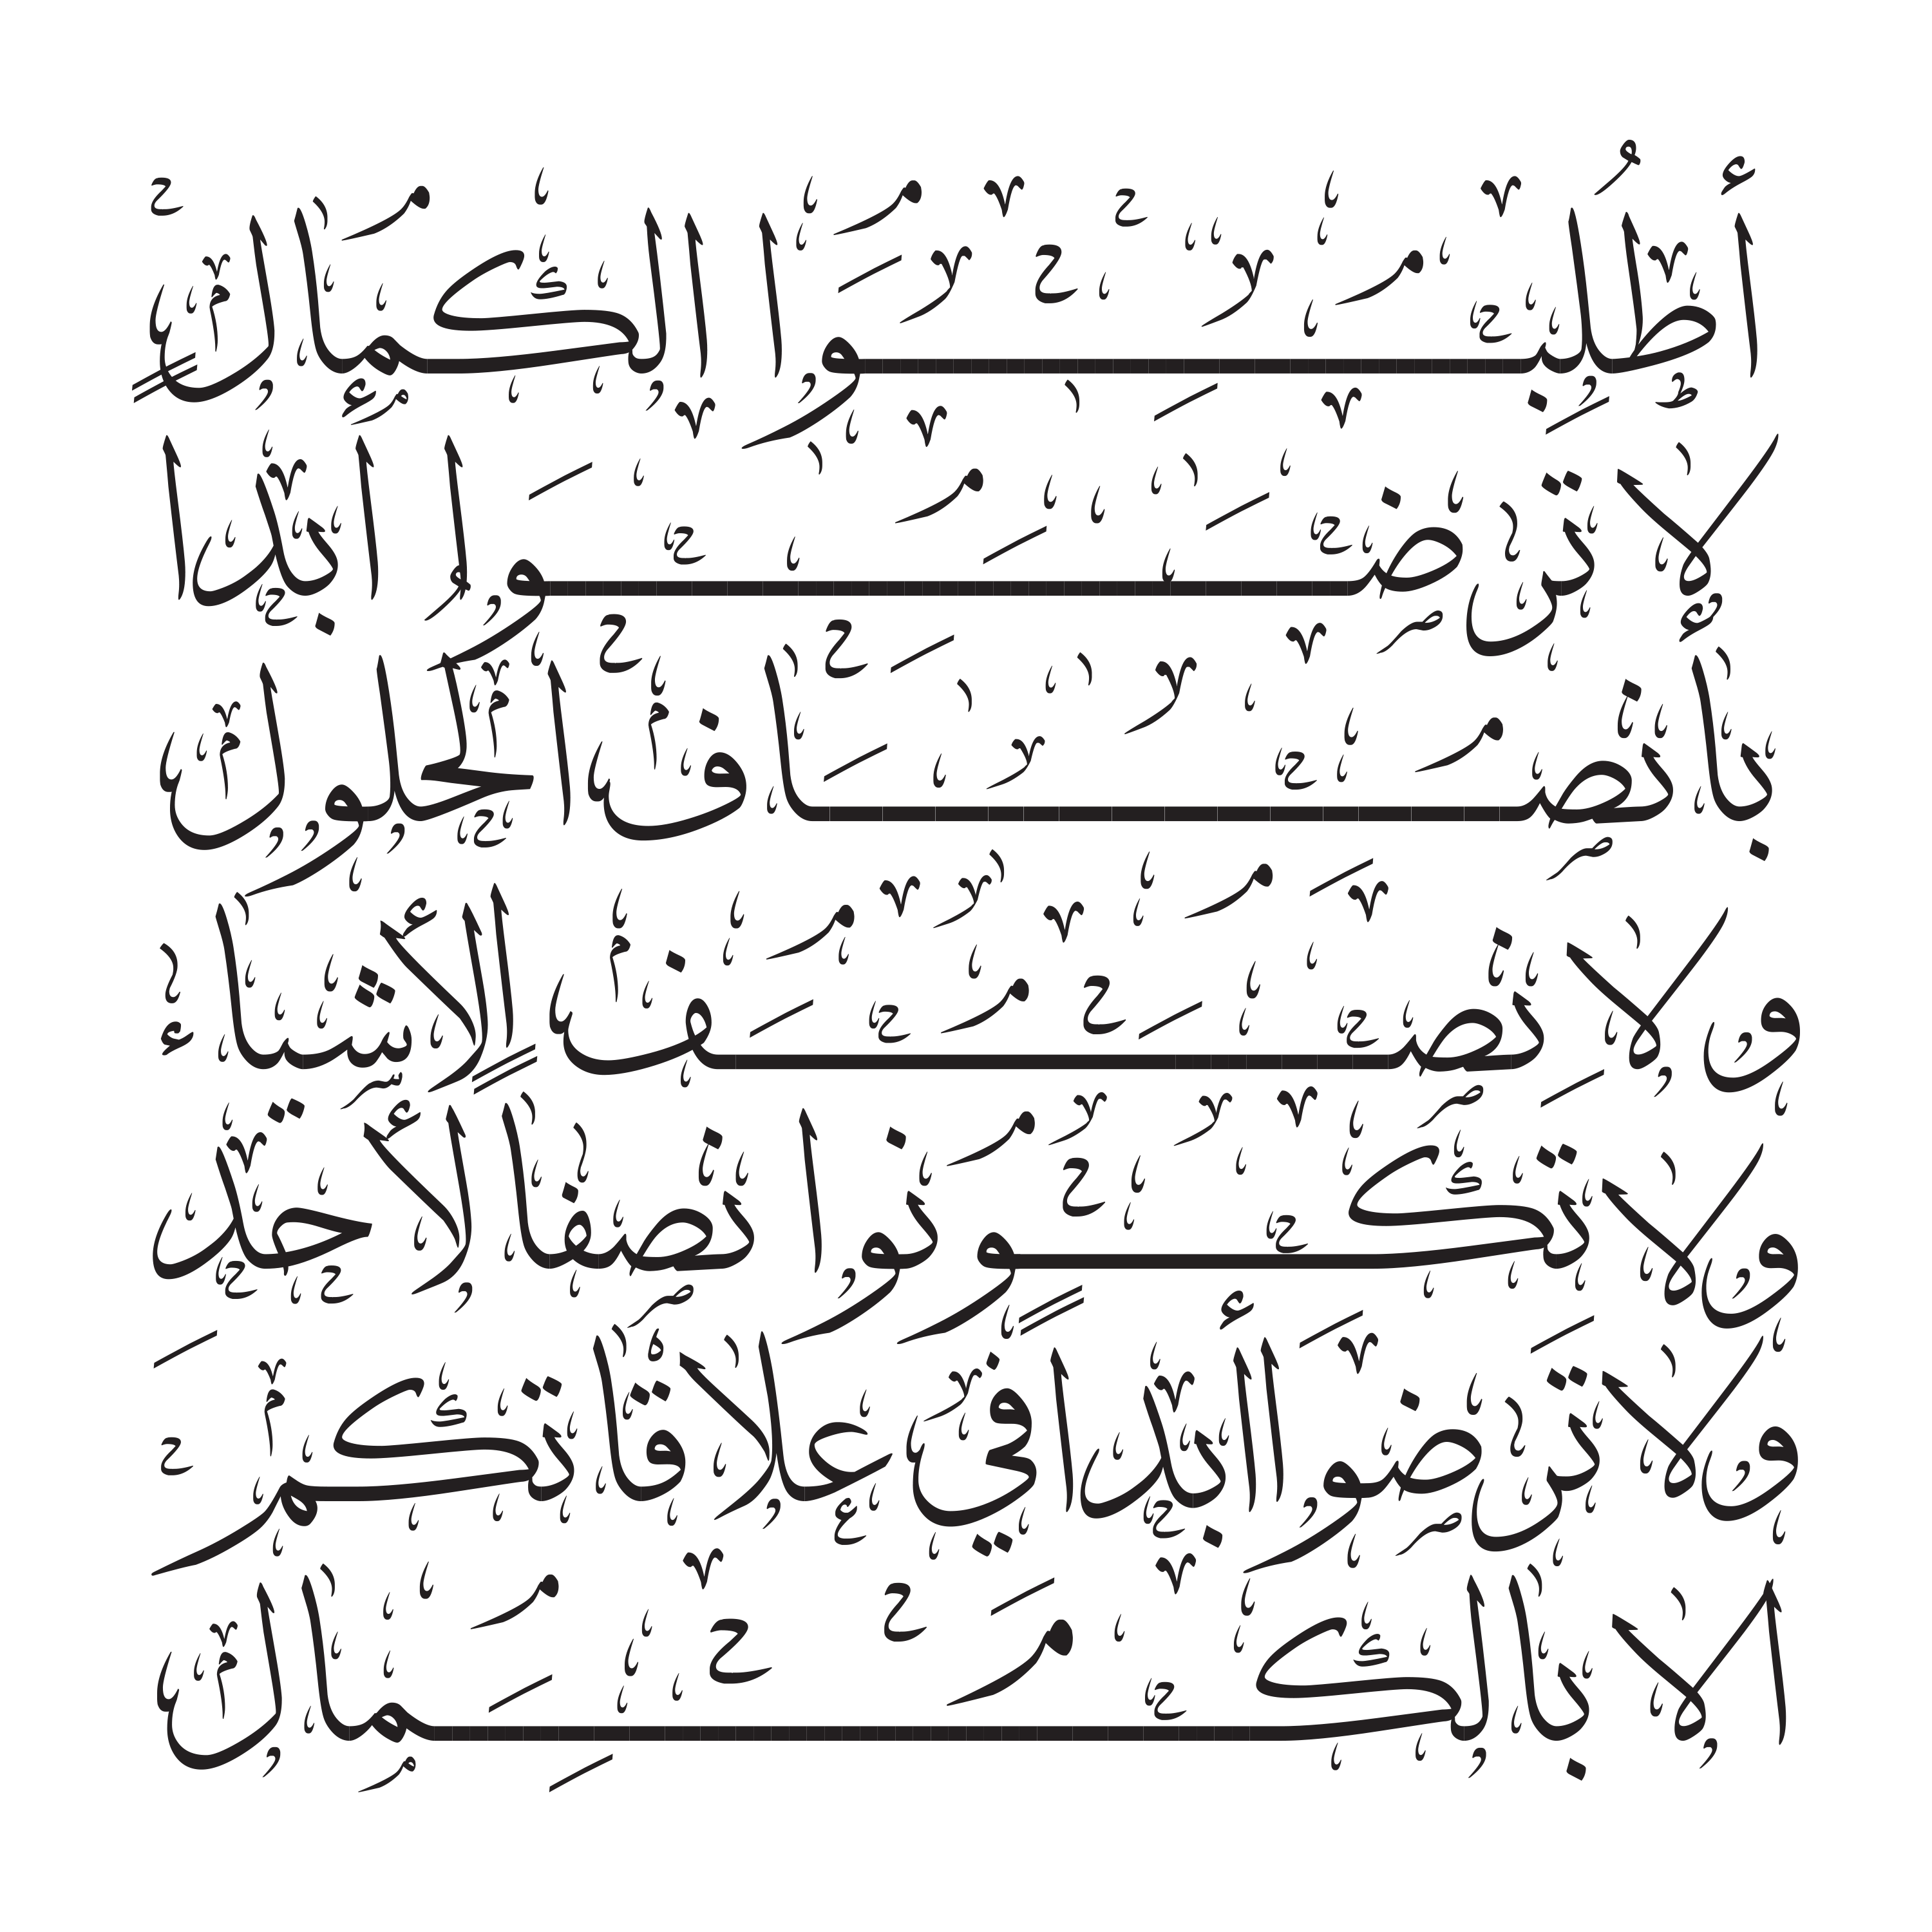 أطلبوا الكمال
لا ترضوا أبدا
بأنصاف الحلول
ولا نصف الأشياء
ولا تكونوا نصفا لأحد
ولا ترضوا أبدا في علاقاتكم
الا بالكمال